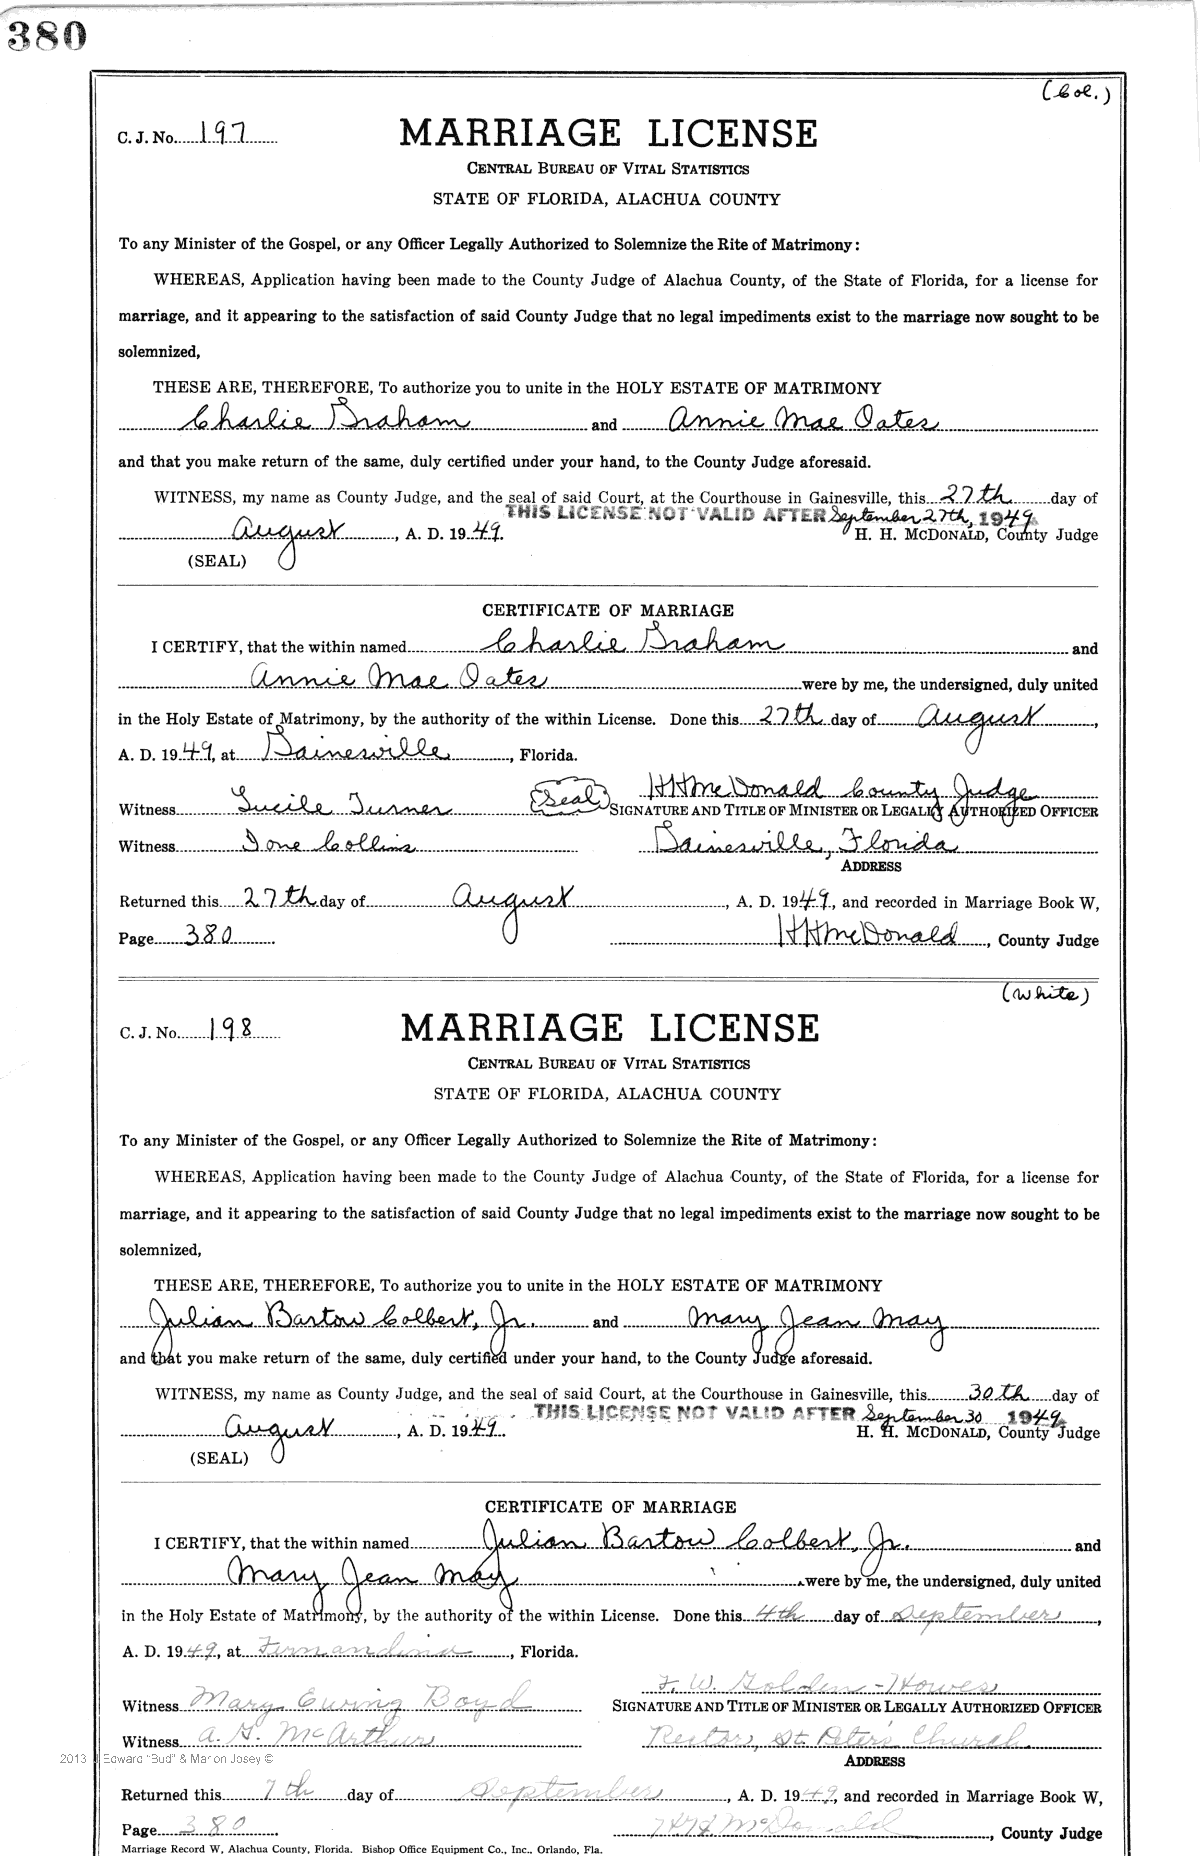 380
(Col.)
C. J. No. 197 MARRIAGE LICENSE
CENTRAL BUREAU OF VITAL STATISTICS
STATE OF FLORIDA, ALACHUA COUNTY
To any Minister of the Gospel, or any Officer Legally Authorized to Solemnize the Rite of Matrimony:
WHEREAS, Application having been made to the County Judge of Alachua County, of the State of Florida, for a license for
marriage, and it appearing to the satisfaction of said County Judge that no legal impediments exist to the marriage now sought to be
solemnized,
THESE ARE, THEREFORE, To authorize you to unite in the HOLY ESTATE OF MATRIMONY
Charlie Graham and Annie Mae Oates
and that you make return of the same, duly certified under your hand, to the County Judge aforesaid.
WITNESS, my name as County Judge, and the seal of said Court, at the Courthouse in Gainesville, this 27th day of
THIS LICENSE NOT VALID AFTER September 27th, 1949
August, A. D. 1949. H. H. McDONALD, County Judge
(SEAL)
CERTIFICATE OF MARRIAGE
I CERTIFY, that the within named Charlie Graham and
Annie Mae Oates were by me, the undersigned, duly united
in the Holy Estate of Matrimony, by the authority of the within License. Done this 27th day of August,
A. D. 1949, at Gainesville, Florida.
HHMcDonald County Judge
Witness Lucile Turner (Seal) SIGNATURE AND TITLE OF MINISTER OR LEGALLY AUTHORIZED OFFICER
Witness Ione Collins Gainesville, Florida
ADDRESS
Returned this 27th day of August, A. D. 1949, and recorded in Marriage Book W,
Page 380 HHMcDonald, County Judge
(White)
C. J. No. 198 MARRIAGE LICENSE
CENTRAL BUREAU OF VITAL STATISTICS
STATE OF FLORIDA, ALACHUA COUNTY
To any Minister of the Gospel, or any Officer Legally Authorized to Solemnize the Rite of Matrimony:
WHEREAS, Application having been made to the County Judge of Alachua County, of the State of Florida, for a license for
marriage, and it appearing to the satisfaction of said County Judge that no legal impediments exist to the marriage now sought to be
solemnized,
THESE ARE, THEREFORE, To authorize you to unite in the HOLY ESTATE OF MATRIMONY
Julian Bartow Colbert, Jr. and Mary Jean May
and that you make return of the same, duly certified under your hand, to the County Judge aforesaid.
WITNESS, my name as County Judge, and the seal of said Court, at the Courthouse in Gainesville, this 30th day of
THIS LICENSE NOT VALID AFTER September 30 1949
August, A. D. 1949. H. H. McDONALD, County Judge
(SEAL)
CERTIFICATE OF MARRIAGE
I CERTIFY, that the within named Julian Bartow Colbert, Jr. and
Mary Jean May were by me, the undersigned, duly united
in the Holy Estate of Matrimony, by the authority of the within License. Done this 4th day of September,
A. D. 1949, at Fernandina, Florida.
F. W. Golden-Howes
Witness Mary Ewing Boyd SIGNATURE AND TITLE OF MINISTER OR LEGALLY AUTHORIZED OFFICER
Witness A. G. McArthur Rector, St. Peter's Church
2013 J Edward "Bud" & Marion Josey © ADDRESS
Returned this 7th day of September, A. D. 1949, and recorded in Marriage Book W,
Page 380. HH McDonald, County Judge
Marriage Record W, Alachua County, Florida. Bishop Office Equipment Co., Inc., Orlando, Fla.